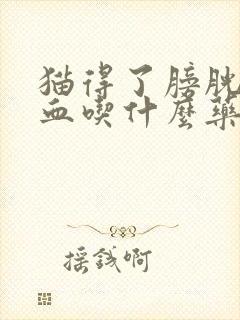 猫得了膀胱
血喫什麼藥
採錢啊